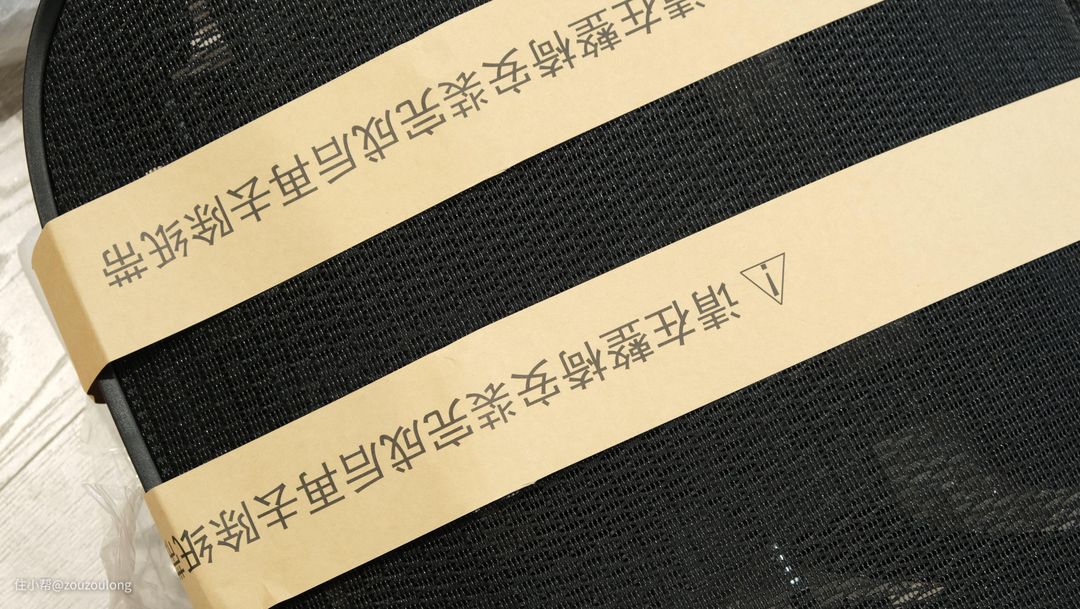 请在整椅安装完成后再去除纸带
请在整椅安装完成后再去除纸带
住小帮@zouzoulong